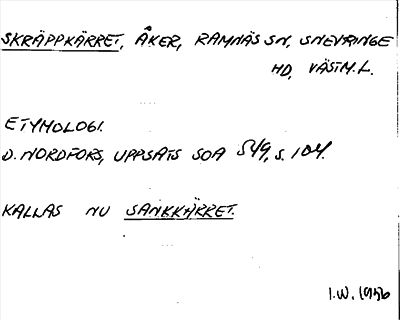 SKRÄPPKÄRRET, ÅKER, RAMNÄS SN, SNEVRINGE
HD, VÄSTM. L.
ETYMOLOGI.
D. NORDFORS, UPPSATS SOA 549, S. 104.
KALLAS NU SANKKÄRRET.
I.W. 1956